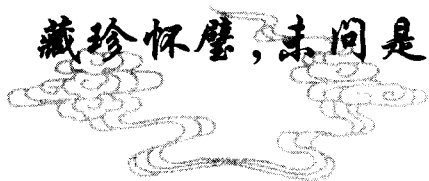 藏珍怀璧,未问是